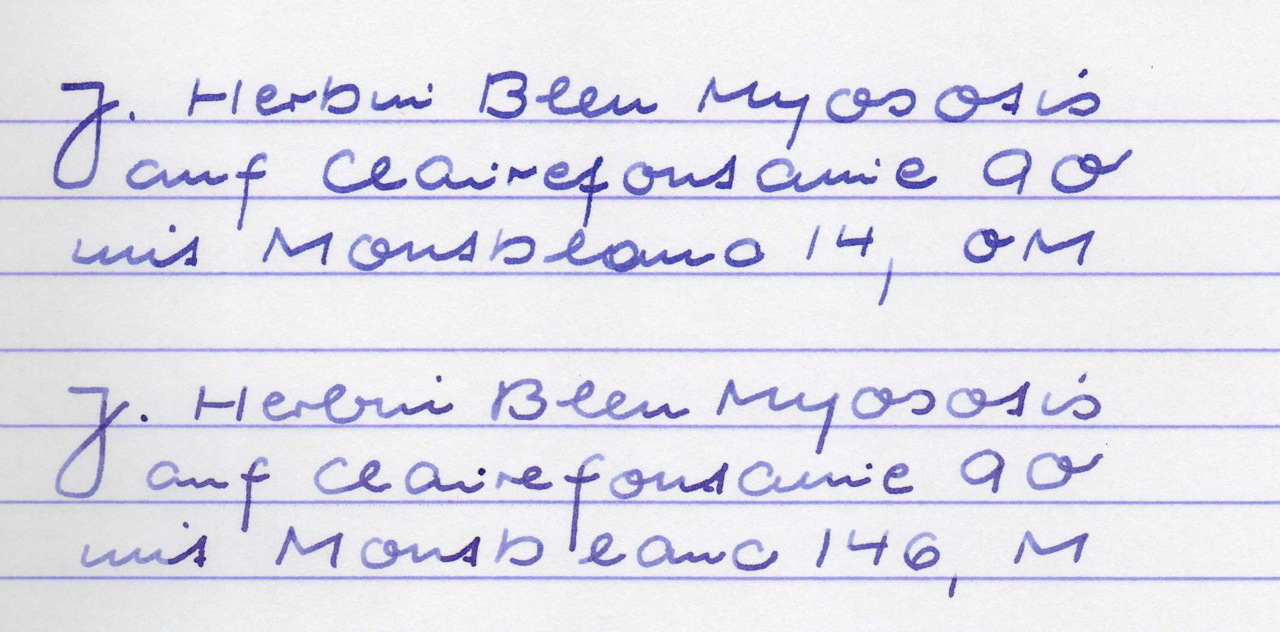 J. Herbin Bleu Myosotis
auf Clairefontaine 90
mit Montblanc 14, OM
J. Herbin Bleu Myosotis
auf Clairefontaine 90
mit Montblanc 146, M